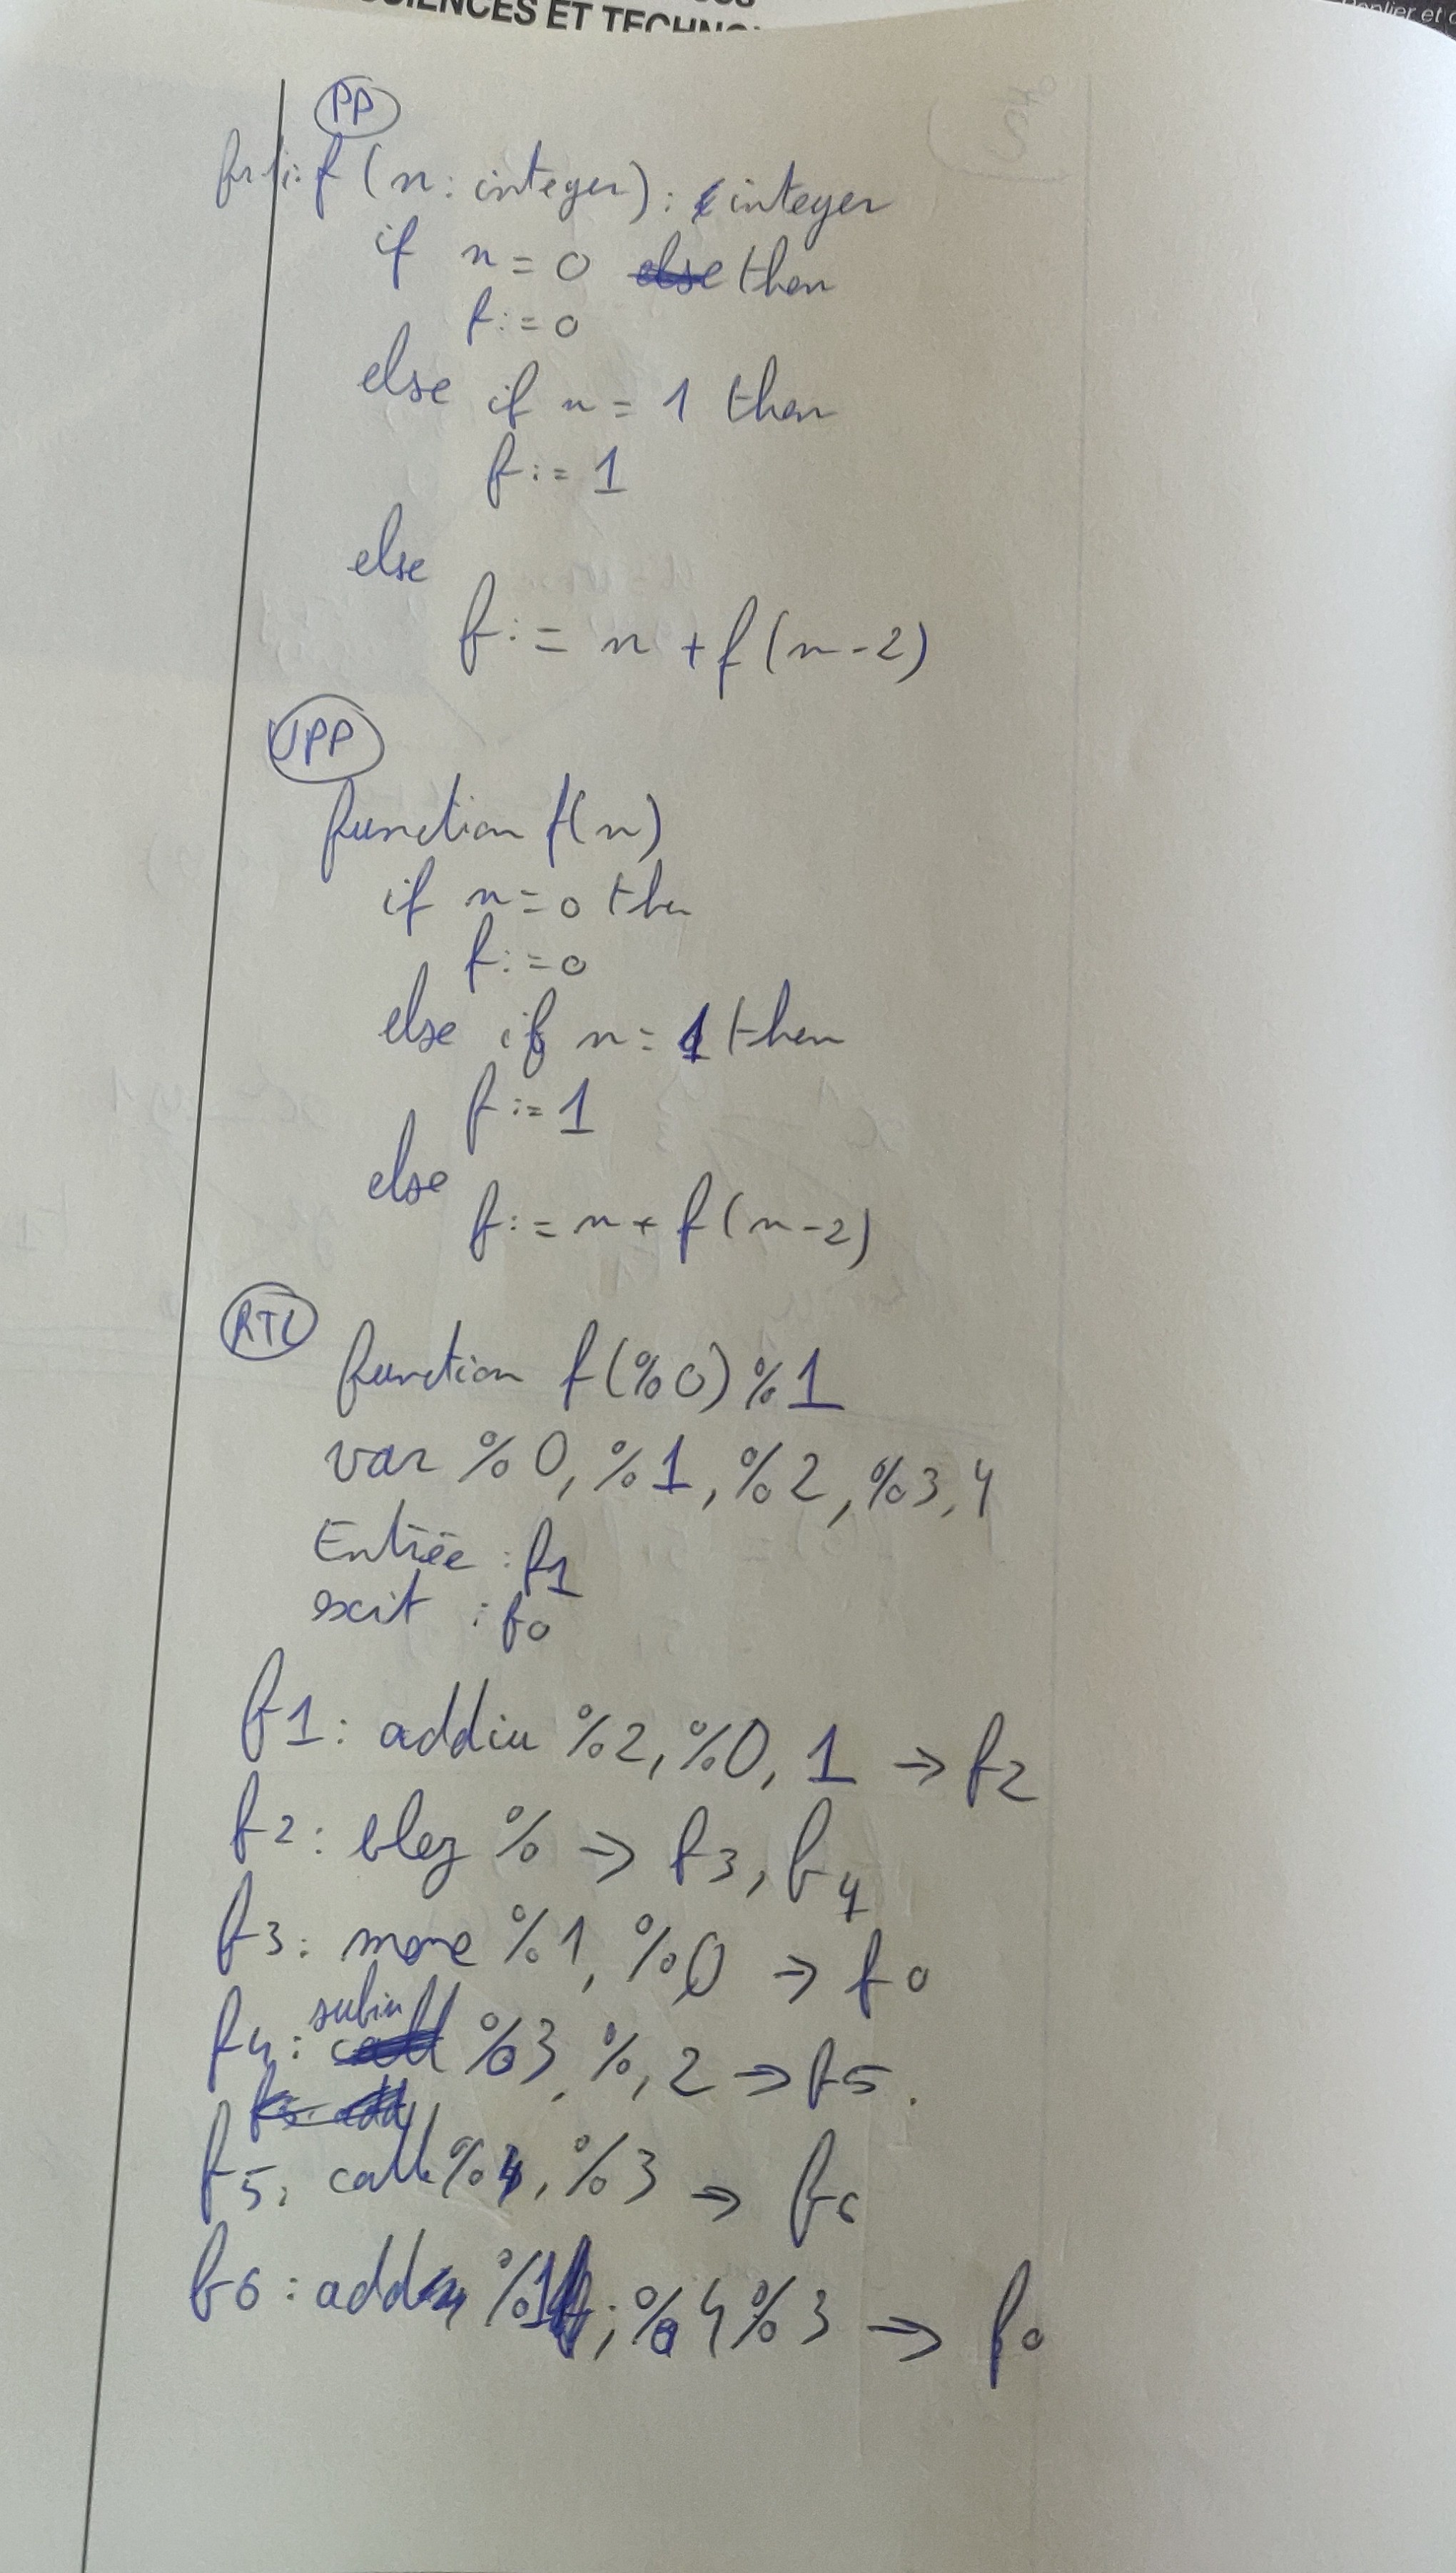 SCIENCES ET TECHNO
PP
f (n: integer): integer
if n = 0 then
f := 0
else if n = 1 then
f := 1
else
f := n + f(n-2)
UPP
function f(n)
if n = 0 then
f := 0
else if n = 1 then
f := 1
else
f := n + f(n-2)
RTL
function f(%0) %1
var %0, %1, %2, %3, 4
Entrée : f1
exit : f0
f1: addiu %2, %0, 1 → f2
f2: blez % → f3, f4
f3: move %1, %0 → f0
f4: subiu %3, %, 2 → f5.
f5: call %4, %3 → f6
f6: addu %1 ; %4 %3 → f0